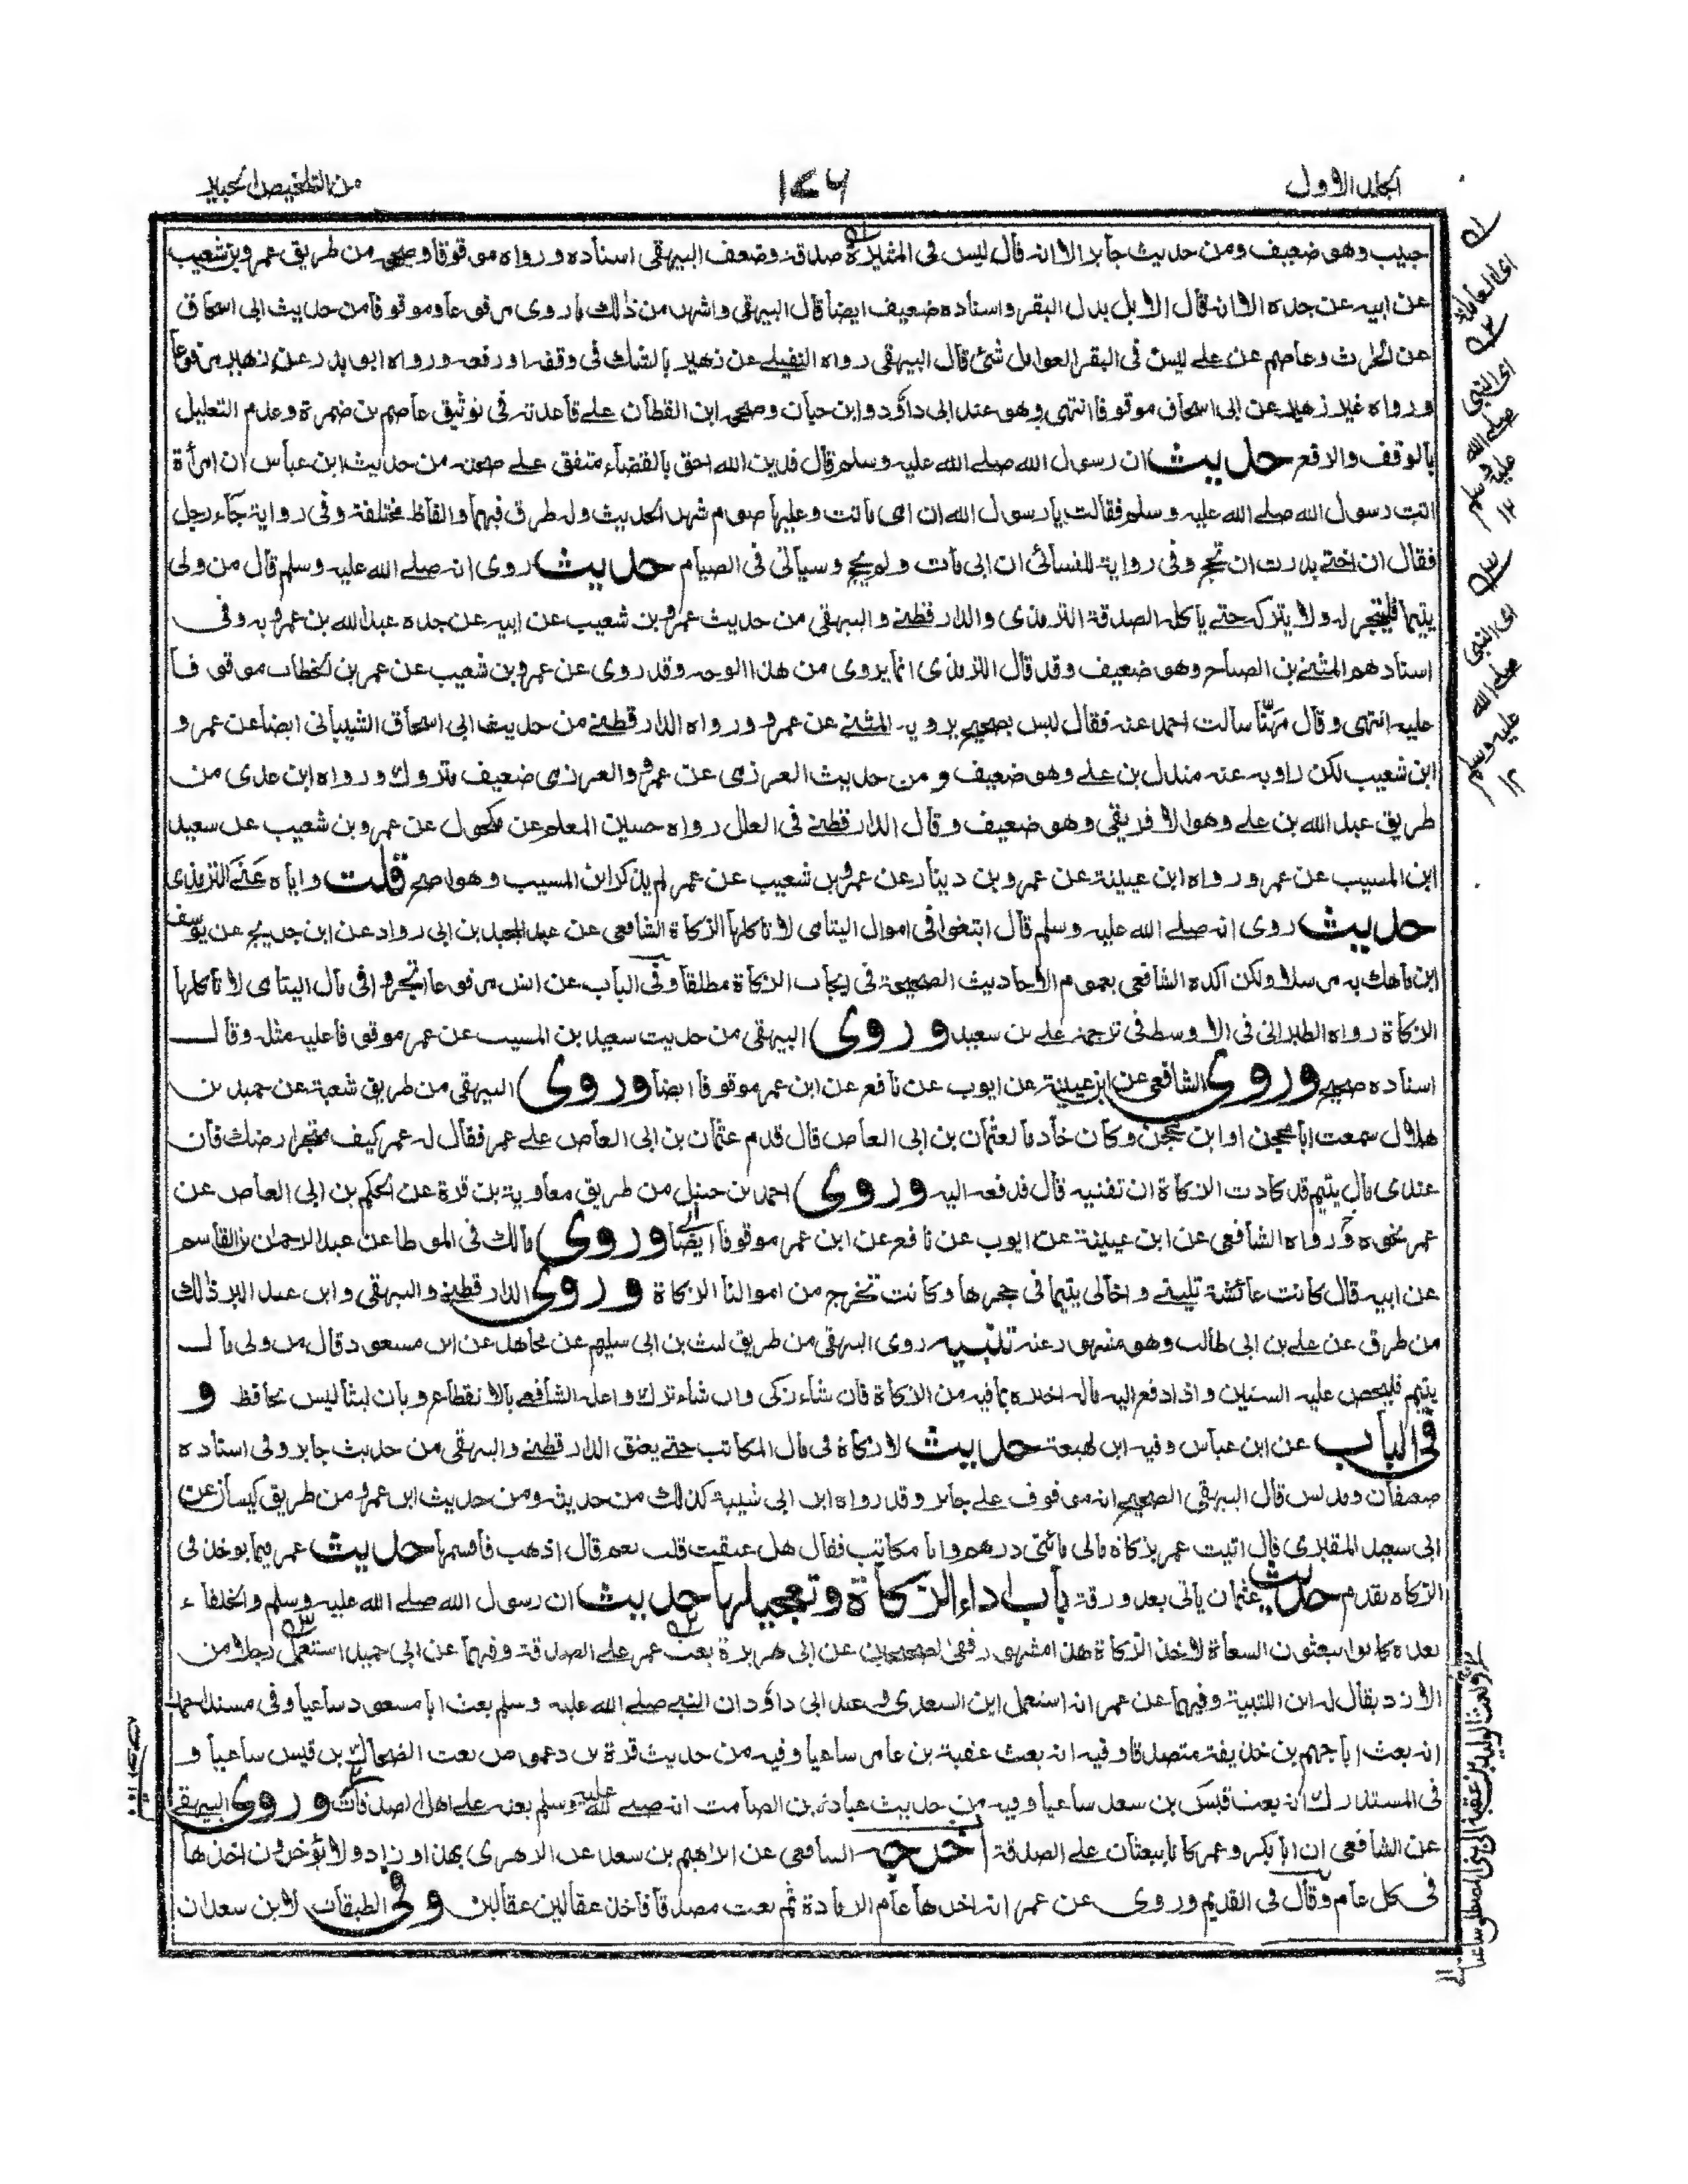 الجلد الاول
١٧٦
من التلخيص الحبير
حبيب وهو ضعيف ومن حديث جابر الا انه قال ليس فى المثيرة صدقة وضعف البيهقى اسناده ورواه موقوفا وصححه من طريق عمرو بن شعيب
عن ابيه عن جده الا انه قال الابل بدل البقر واسناده ضعيف ايضا قال البيهقى واشهر من ذلك ما روى مرفوعا وموقوفا من حديث ابى اسحاق
عن الحارث وعاصم عن على ليس فى البقر العوامل شئ قال البيهقى رواه النفيلى عن زهير بالشك فى وقفه او رفعه ورواه ابو بدر عن زهير مرفوعا
ورواه غير زهير عن ابى اسحاق موقوفا انتهى وهو عند ابى داؤد وابن حبان وصححه ابن القطان على قاعدته فى توثيق عاصم بن ضمرة وعدم التعليل
بالوقف والرفع حديث ان رسول الله صلى الله عليه وسلم قال فدين الله احق بالقضاء متفق على صحته من حديث ابن عباس ان امرأة
اتت رسول الله صلى الله عليه وسلم فقالت يا رسول الله ان امى ماتت وعليها صوم شهر الحديث وله طرق فيهما والفاظ مختلفة وفى رواية جاء رجل
فقال ان اختى نذرت ان تحج وفى رواية للنسائى ان ابى مات ولم يحج وسيأتى فى الصيام حديث روى انه صلى الله عليه وسلم قال من ولى
يتيما فليتجر له ولا يتركه حتى ياكله الصدقة الترمذى والدارقطنى والبيهقى من حديث عمرو بن شعيب عن ابيه عن جده عبد الله بن عمرو به وفى
اسنادهم المثنى بن الصباح وهو ضعيف وقد قال الترمذى انما يروى من هذا الوجه وقد روى عن عمرو بن شعيب عن عمر بن الخطاب موقوفا
عليه انتهى وقال مهنّا سالت احمد عنه فقال ليس بصحيح يرويه المثنى عن عمرو ورواه الدارقطنى من حديث ابى اسحاق الشيبانى ايضا عن عمرو
ابن شعيب لكن راويه عنه مندل بن على وهو ضعيف ومن حديث العرزمى عن عمرو والعرزمى ضعيف متروك ورواه ابن عدى من
طريق عبد الله بن على وهو الافريقى وهو ضعيف وقال الدارقطنى فى العلل رواه حسين المعلم عن مكحول عن عمرو بن شعيب عن سعيد
ابن المسيب عن عمر ورواه ابن عيينة عن عمرو بن دينار عن عمرو بن شعيب عن عمر لم يذكر ابن المسيب وهو اصح قلت واياه عنى الترمذى
حديث روى انه صلى الله عليه وسلم قال ابتغوا فى اموال اليتامى لا تاكلها الزكاة الشافعى عن عبد المجيد بن ابى رواد عن ابن جريج عن يوسف
ابن ماهك به مرسلا ولكن اكده الشافعى بعموم الاحاديث الصحيحة فى ايجاب الزكاة مطلقا وفى الباب عن انس مرفوعا اتجروا فى مال اليتامى لا تاكلها
الزكاة رواه الطبرانى فى الاوسط فى ترجمة على بن سعيد وروى البيهقى من حديث سعيد بن المسيب عن عمر موقوفا عليه مثله وقال
اسناده صحيح وروى الشافعى عن ابن عيينة عن ايوب عن نافع عن ابن عمر موقوفا ايضا وروى البيهقى من طريق شعبة عن حميد بن
هلال سمعت ابا محجن او ابن محجن وكان خادما لعثمان بن ابى العاص قال قدم عثمان بن ابى العاص على عمر فقال له عمر كيف متجر ارضك فان
عندى مال يتيم قد كادت الزكاة ان تفنيه قال فدفعه اليه وروى احمد بن حنبل من طريق معاوية بن قرة عن الحكم بن ابى العاص عن
عمر نحوه ورواه الشافعى عن ابن عيينة عن ايوب عن نافع عن ابن عمر موقوفا ايضا وروى مالك فى الموطا عن عبد الرحمان بن القاسم
عن ابيه قال كانت عائشة تلينى واخا لى يتيما فى حجرها وكانت تخرج من اموالنا الزكاة وروى الدارقطنى والبيهقى وابن عبد البر ذلك
من طرق عن على بن ابى طالب وهو مشهور عنه تنبيه روى البيهقى من طريق ليث بن ابى سليم عن مجاهد عن ابن مسعود قال من ولى مال
يتيم فليحص عليه السنين واذا دفع اليه ماله اخبره بما فيه من الزكاة فان شاء زكى وان شاء ترك واعله الشافعى بالانقطاع وبان ليثا ليس بحافظ و
فى الباب عن ابن عباس وفيه ابن لهيعة حديث لا زكاة فى مال المكاتب حتى يعتق الدارقطنى والبيهقى من حديث جابر وفى اسناده
ضعفان ومدلس قال البيهقى الصحيح انه موقوف على جابر وقد رواه ابن ابى شيبة كذلك من حديثه ومن حديث ابن عمر ومن طريق كيسان عن
ابى سعيد المقبرى قال اتيت عمر بزكاة مالى مائتى درهم وانا مكاتب فقال هل عتقت قلت نعم قال اذهب فاقسمها حديث عمر فيما يوخذ فى
الزكاة تقدم حديث عثمان ياتى بعد ورقة باب اداء الزكاة وتعجيلها حديث ان رسول الله صلى الله عليه وسلم والخلفاء
بعده كانوا يبعثون السعاة لاخذ الزكاة هذا مشهور ففى الصحيحين عن ابى هريرة بعث عمر على الصدقة وفيهما عن ابى حميد استعمل رجلا من
الازد يقال له ابن اللتبية وفيهما عن عمر انه استعمل ابن السعدى وعند ابى داؤد ان النبى صلى الله عليه وسلم بعث ابا مسعود ساعيا وفى مسند احمد
انه بعث ابا جهم بن حذيفة متصدقا وفيه انه بعث عقبة بن عامر ساعيا وفيه من حديث قرة بن دعموص بعث الضحاك بن قيس ساعيا و
فى المستدرك انه بعث قيس بن سعد ساعيا وفيه من حديث عبادة بن الصامت انه صلى الله عليه وسلم بعثه على اهل الصدقات وروى البيهقى
عن الشافعى ان ابا بكر وعمر كانا يبعثان على الصدقة اخرجه الشافعى عن ابراهيم بن سعد عن الزهرى بهذا وزاد ولا يؤخرون اخذها
فى كل عام وقال فى القديم وروى عن عمر انه اخرها عام الرمادة ثم بعث مصدقا فاخذ عقالين عقالين وفى الطبقات لابن سعد ان
اى العاملة
اى النبى
صلى الله
عليه وسلم
١٢
اى النبى
صلى الله
عليه وسلم
١٢
وبعث الوليد بن عقبة الى بنى المصطلق ساعيا
١٢